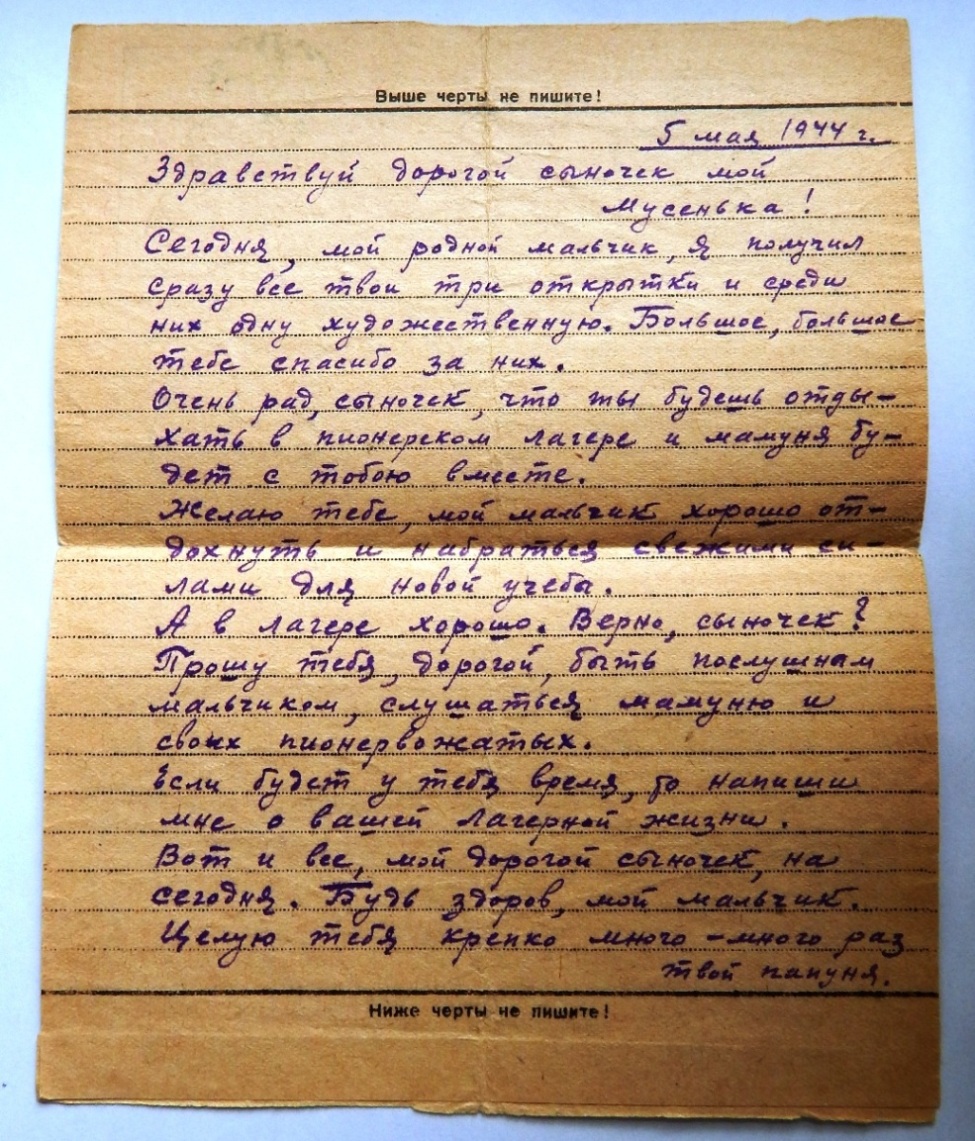 Выше черты не пишите!
5 мая 1944 г.
Здравствуй дорогой сыночек мой
Мусенька!
Сегодня, мой родной мальчик, я получил
сразу все твои три открытки и среди
них одну художественную. Большое, большое
тебе спасибо за них.
Очень рад, сыночек, что ты будешь отды-
хать в пионерском лагере и мамуня бу-
дет с тобою вместе.
Желаю тебе, мой мальчик хорошо от-
дохнуть и набраться свежими си-
лами для новой учебы.
А в лагере хорошо. Верно, сыночек?
Прошу тебя, дорогой, быть послушным
мальчиком, слушаться мамуню и
своих пионервожатых.
Если будет у тебя время, то напиши
мне о вашей лагерной жизни.
Вот и все, мой дорогой сыночек, на
сегодня. Будь здоров, мой мальчик.
Целую тебя крепко много-много раз
твой папуня.
Ниже черты не пишите!